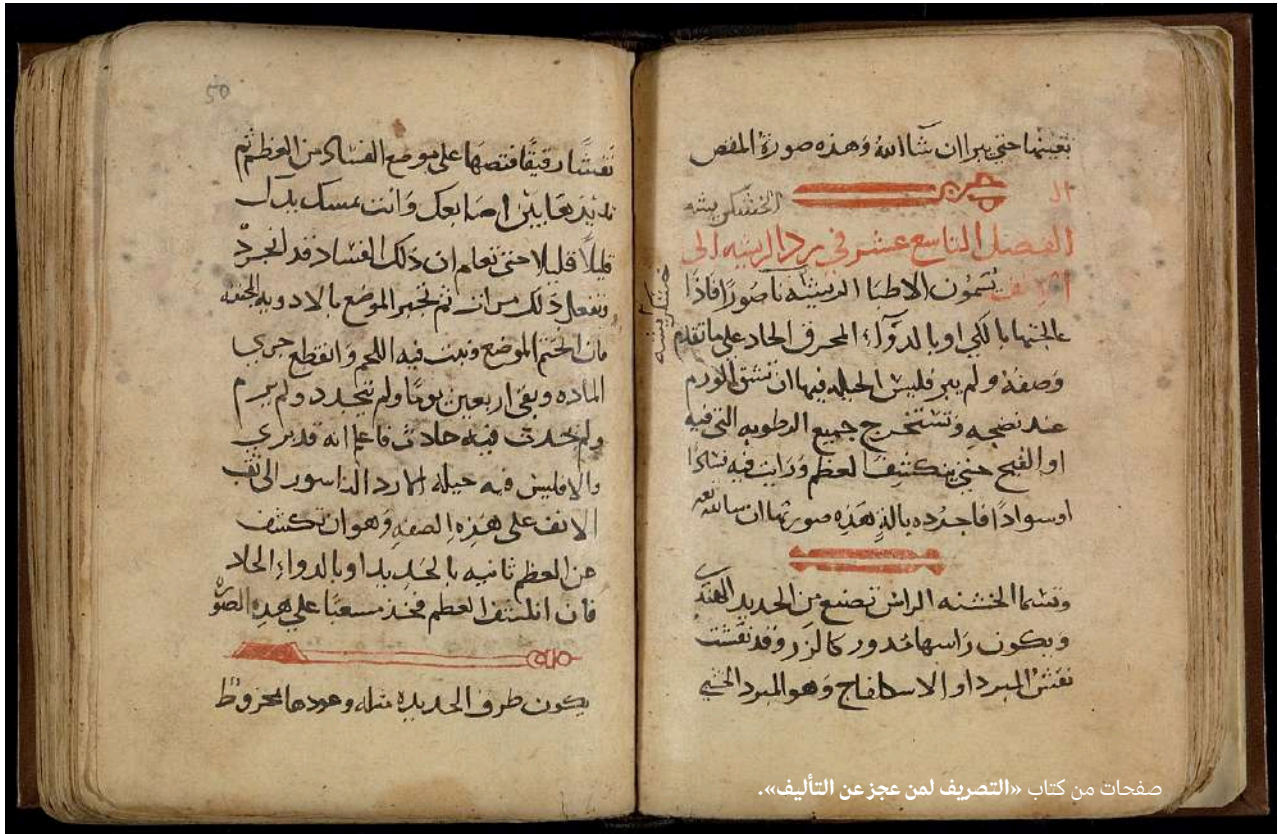 تغبنها حتى يبرا ان شا الله وهذه صورة المقص
الخشكريشه
الفصل التاسع عشر في رد الريشه الى
الانف تسمون الاطبا الريشه ناصورا فاذا
عالجتها بالكي او بالدوآء المحرق الحاد على ما تقدم
وصفه ولم يبر فليس الحيله فيها ان تشق الورم
عند نضجه وتستخرج جميع الرطوبه التي فيه
او القيح حتى ينكشف لعظم ورايت فيه فسادا
اوسوادا فاجرده بالة هذه صورتها ان شا الله
وتسما الخشنه الراس تصنع من الحديد الهند
ويكون راسها مدور كالزر وقد نقشت
نقش المبرد او الاسكفاج وهو المبرد الخشبي
50
نقشا رقيقا فتضعها على موضع الفساد من العظم ثم
تديرها بين اصابعك وانت تمسك يدك
قليلا قليلا حتى تعلم ان ذلك الفساد قد انجرد
وتفعل ذلك مرات ثم تجبر الموضع بالادويه المجففه
فان التحم الموضع ونبت فيه اللحم وانقطع جري
الماده وبقي اربعين يوما ولم يتجدد ولم يرم
ولم يحدث فيه حادث فاعلم انه قد بري
والا فليس فيه حيله الا رد الناسور الى ثقب
الانف على هذه الصفه وهو ان تكشف
عن العظم ثانيه بالحديد او بالدواء الحاد
فان انكشف العظم فخذ مسعبا على هذه الصوره
يكون طرف الحديده مثله وعودها مخروط
صفحات من كتاب «التصريف لمن عجز عن التأليف».